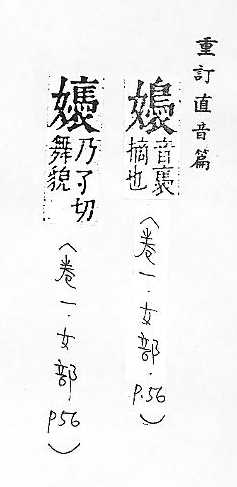 重訂直音篇
嬝
音褭
摘也
(卷一.女部.P.56)
乃了切
舞貌
(卷一.女部P56)